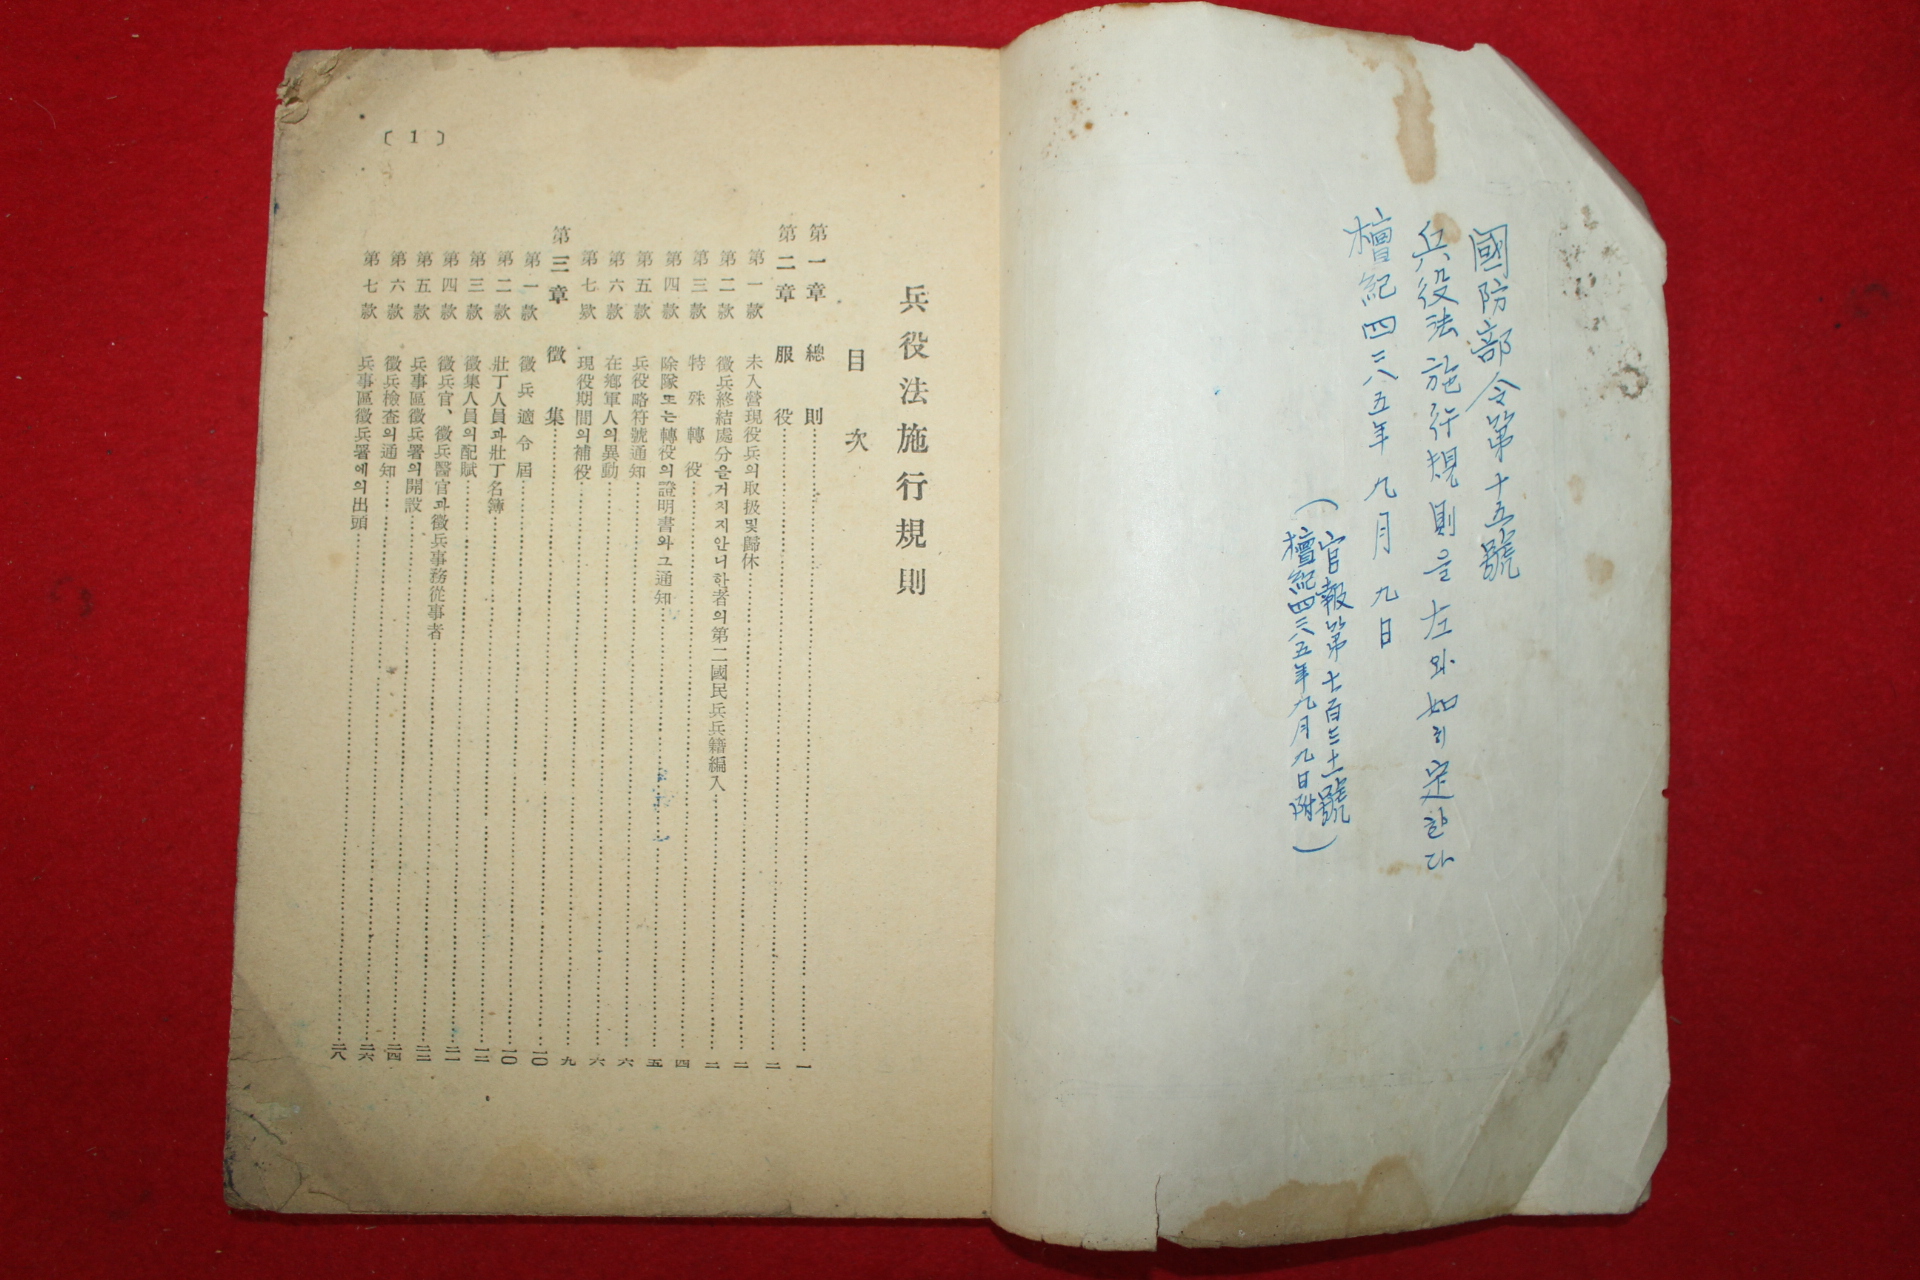 國防部令第十五號
兵役法施行規則을左와如히定한다
檀紀四二八五年九月九日
(官報第七百三十一號
檀紀四二八五年九月九日附)
兵役法施行規則
目次
第一章 總則 一
第二章 服役 二
第一款 未入營現役兵의取扱및歸休 二
第二款 徵兵終結處分을거치지안니한者의第二國民兵兵籍編入 二
第三款 特殊轉役 四
第四款 除隊또는轉役의證明書와그通知 五
第五款 兵役略符號通知 六
第六款 在鄉軍人의異動 六
第七款 現役期間의補役 九
第三章 徵集 一〇
第一款 徵兵適令屆 一〇
第二款 壯丁人員과壯丁名簿 一二
第三款 徵集人員의配賦 二一
第四款 徵兵官、徵兵醫官과徵兵事務從事者 二二
第五款 兵事區徵兵署의開設 二四
第六款 徵兵檢査의通知 二六
第七款 兵事區徵兵署에의出頭 二八
〔1〕